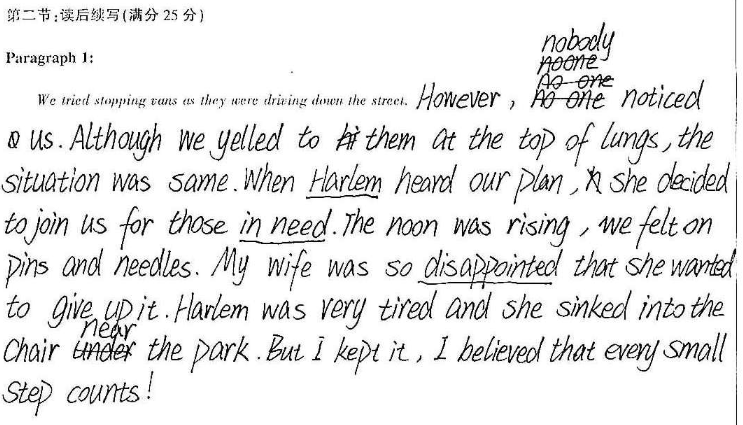 第二节:读后续写(满分 25 分)
Paragraph 1:
nobody
noone
No one
We tried stopping vans as they were driving down the street. However, No one noticed
us. Although we yelled to them at the top of lungs, the
situation was same. When Harlem heard our plan, she decided
to join us for those in need. The noon was rising, we felt on
pins and needles. My wife was so disappointed that she wanted
to give up it. Harlem was very tired and she sinked into the
near
chair under the park. But I kept it, I believed that every small
step counts!